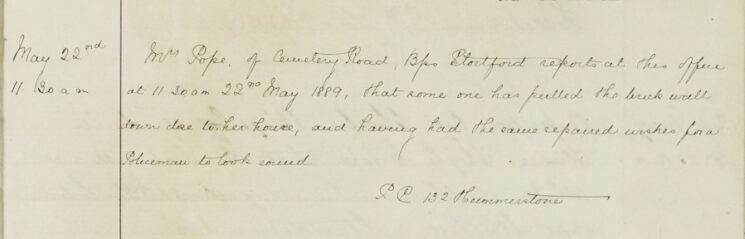 May 22nd
11 30 am
Mrs Pope, of Cemetery Road, Bps Stortford reports at this office
at 11 30 am 22nd May 1889, that some one has pulled the brick wall
down close to her house, and having had the same repaired wishes for a
Policeman to look round
P C 132 Hummerstone